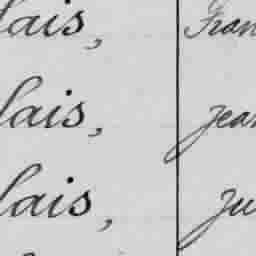 lais, Fran
lais, Jean
lais, Ju